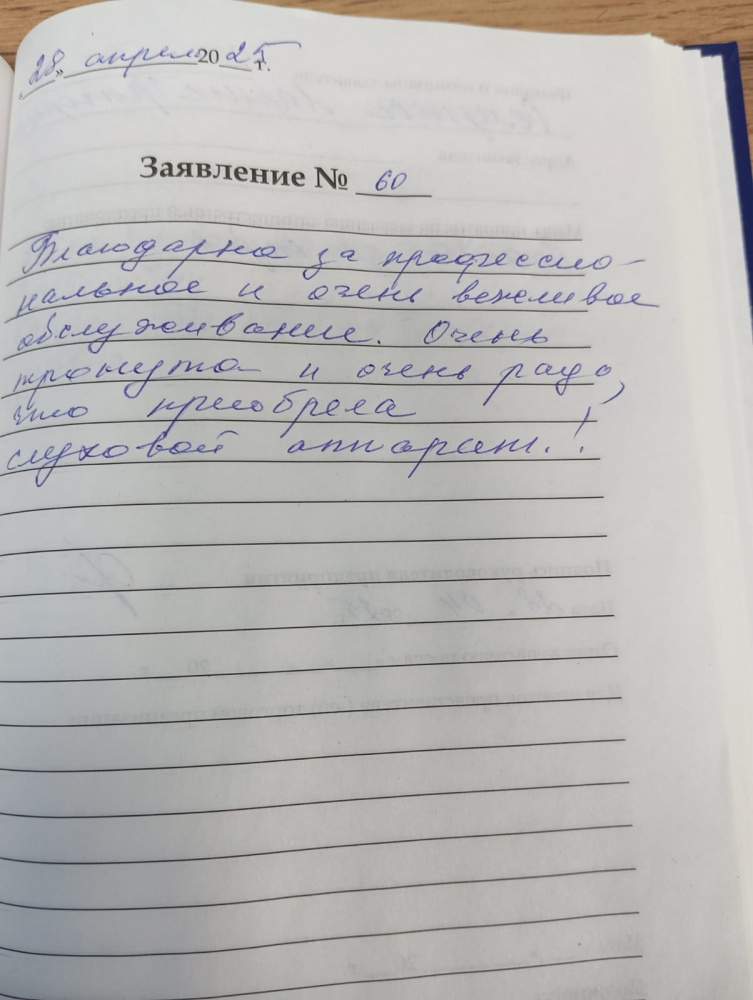 28 » апрел 2025 г.
Заявление № 60
Благодарна за профессио-
нальное и очень вежливое
обслуживание. Очень
тронута и очень рада,
что приобрела
слуховой аппарат.!